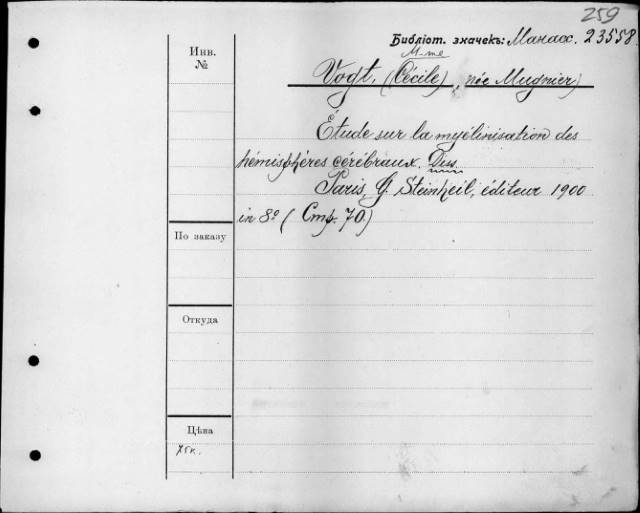 259
Библіот. значекъ: Манасс. 23558
Инв.
№
M-me
Vogt, (Cécile), née Mugnier)
Étude sur la myélinisation des
hémisphères cérébraux. Diss.
Paris, G. Steinheil, éditeur 1900
in 8º (Стр. 70.)
По заказу
Откуда
Цѣна
75к.